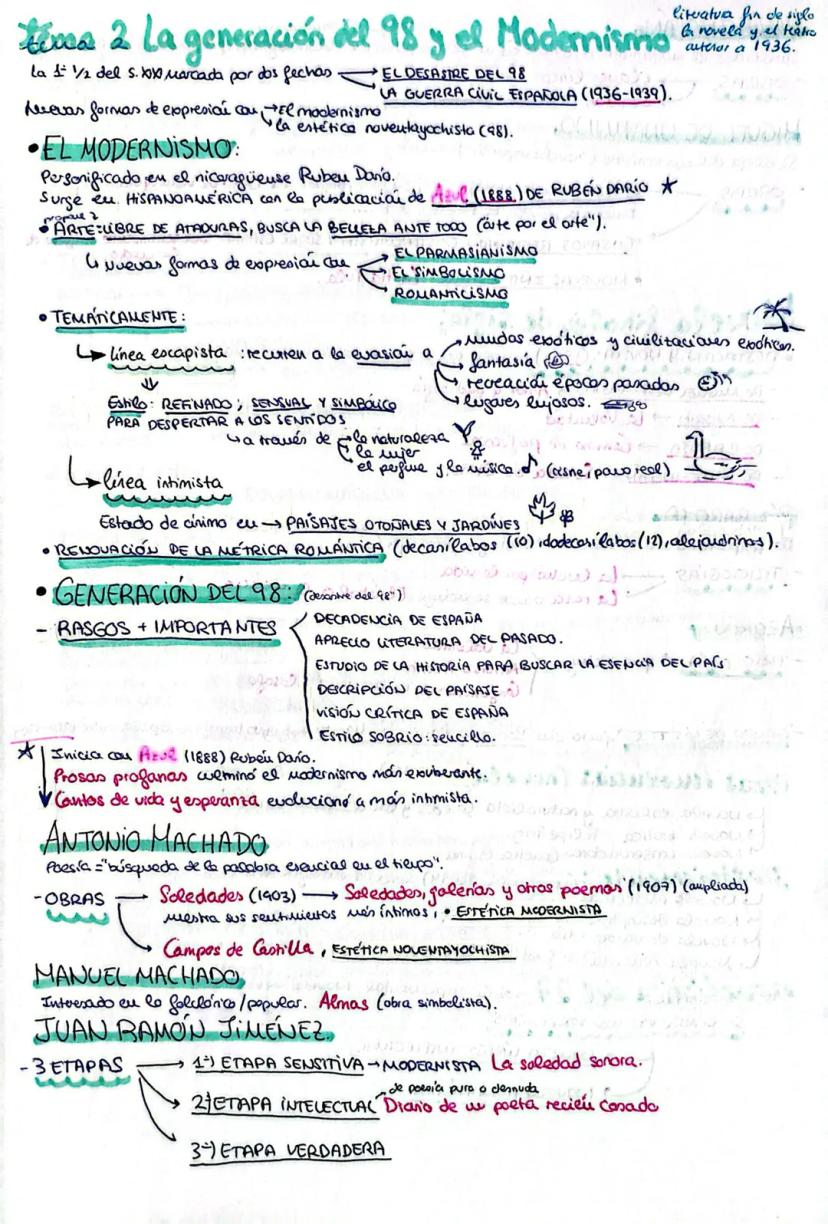 tema 2 La generación del 98 y el Modernismo
literatura fin de siglo
la novela y el teatro
anterior a 1936.
La 1ª 1/2 del S. XX marcada por dos fechas → EL DESASTRE DEL 98
LA GUERRA CIVIL ESPAÑOLA (1936-1939).
Nuevas formas de expresión con → el modernismo
la estética noventayochista (98).
• EL MODERNISMO:
Personificado en el nicaragüense Ruben Darío.
Surge en HISPANOAMÉRICA con la publicación de Azul (1888) DE RUBÉN DARÍO ★
propone
• ARTE LIBRE DE ATADURAS, BUSCA LA BELLEZA ANTE TODO (“arte por el arte”).
↳ Nuevas formas de expresión con
EL PARNASIANISMO
EL SIMBOLISMO
ROMANTICISMO
• TEMÁTICAMENTE:
→ línea escapista : recurren a la evasión a
mundos exóticos y civilizaciones exóticas.
fantasía
recreación épocas pasadas
lugares lujosos.
Estilo: REFINADO; SENSUAL Y SIMBÓLICO
PARA DESPERTAR A LOS SENTIDOS
↳ a través de
la naturaleza
la mujer
el perfume y la música. ♪ (cisne, pavo real)
→ línea intimista
Estado de ánimo en → PAISAJES OTOÑALES Y JARDINES
• RENOVACIÓN DE LA MÉTRICA ROMÁNTICA (decasílabos (10), dodecasílabos (12), alejandrinos).
• GENERACIÓN DEL 98: (desastre del 98")
- RASGOS + IMPORTANTES
DECADENCIA DE ESPAÑA
APRECIO LITERATURA DEL PASADO.
ESTUDIO DE LA HISTORIA PARA BUSCAR LA ESENCIA DEL PAÍS
DESCRIPCIÓN DEL PAISAJE
VISIÓN CRÍTICA DE ESPAÑA
ESTILO SOBRIO: sencillo
★ Inicia con Azul (1888) Rubén Darío.
Prosas profanas culminó el modernismo más exuberante.
Cantos de vida y esperanza evolucionó a más intimista.
ANTONIO MACHADO
Poesía = "búsqueda de la palabra esencial en el tiempo".
- OBRAS → Soledades (1903) → Soledades, galerías y otros poemas (1907) (ampliada)
muestra sus sentimientos más íntimos, • ESTÉTICA MODERNISTA
Campos de Castilla, ESTÉTICA NOVENTAYOCHISTA
MANUEL MACHADO
Interesado en lo folclórico / popular. Almas (obra simbolista).
JUAN RAMÓN JIMÉNEZ.
- 3 ETAPAS → 1ª) ETAPA SENSITIVA → MODERNISTA La soledad sonora.
de poesía pura o desnuda
2ª) ETAPA INTELECTUAL Diario de un poeta recién casado
3ª) ETAPA VERDADERA